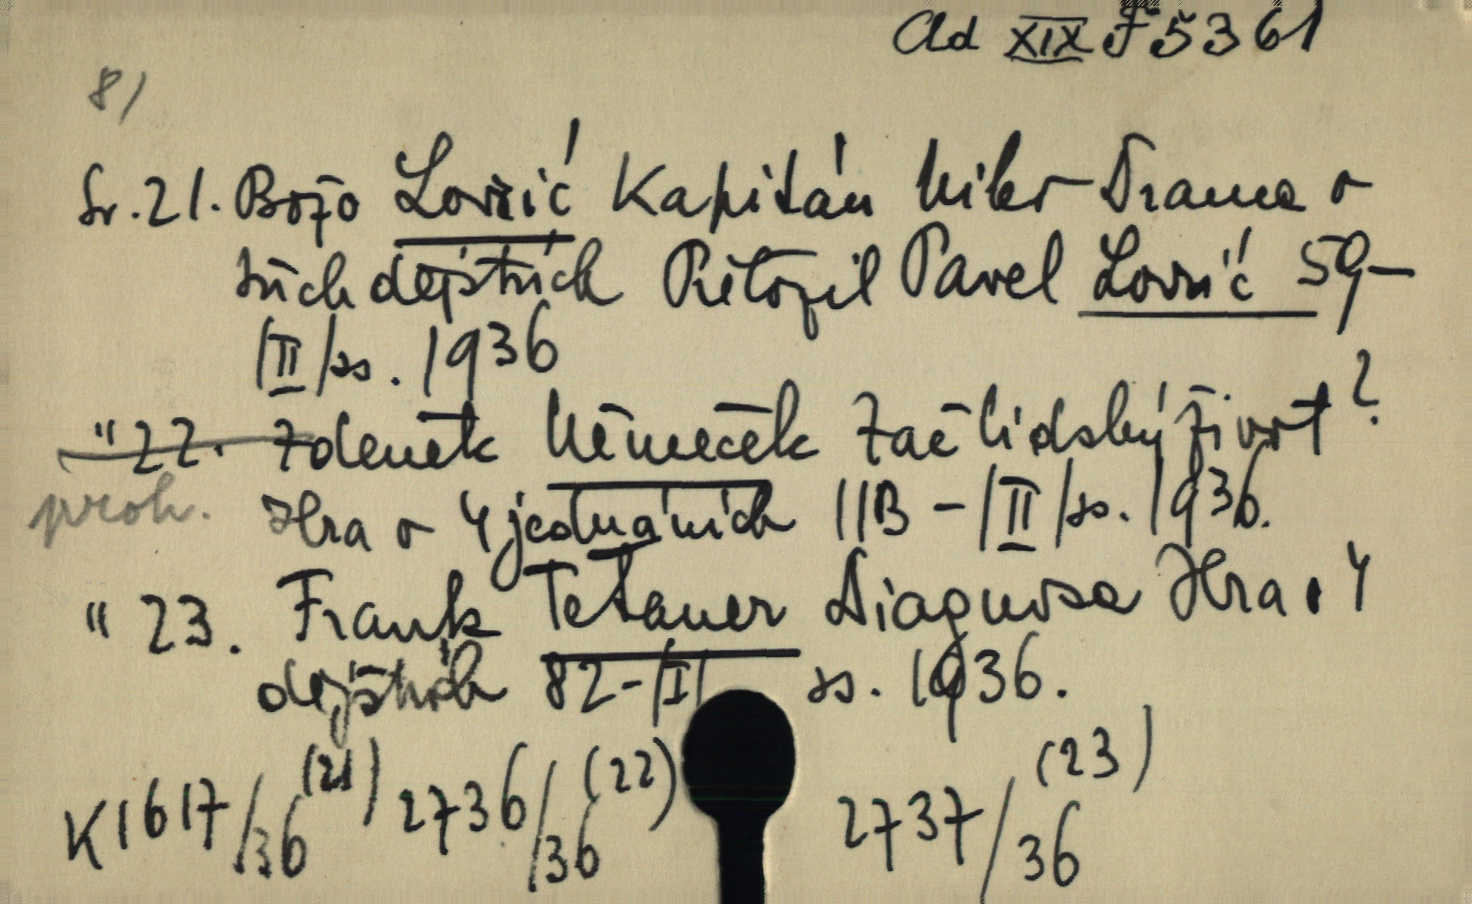 Ad XIX F 5361
8/
Sv. 21. Božo Lovrić Kapitán Niko Drama o
třích dějstvích Přeložil Pavel Lovrić 59-
/II/ss. 1936
" 22. Zdeněk Němeček Zač lidský život?
proh. Hra o 4 jednáních 11B - /II/ss. 1936.
" 23. Frank Tetauer Diagnosa Hra o 4
dějstvích 82 - /I/ ss. 1936.
K 1617/36 (21) 2736/36 (22) 2737/36 (23)